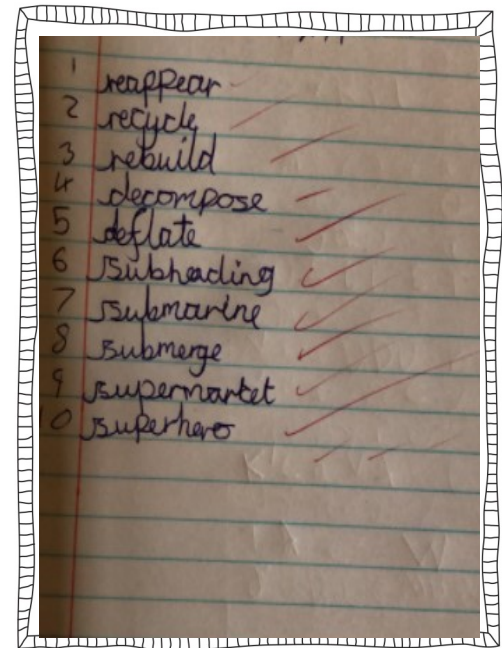 1 reappear
2 recycle
3 rebuild
4 decompose
5 deflate
6 subheading
7 submarine
8 submerge
9 supermarket
10 superhero